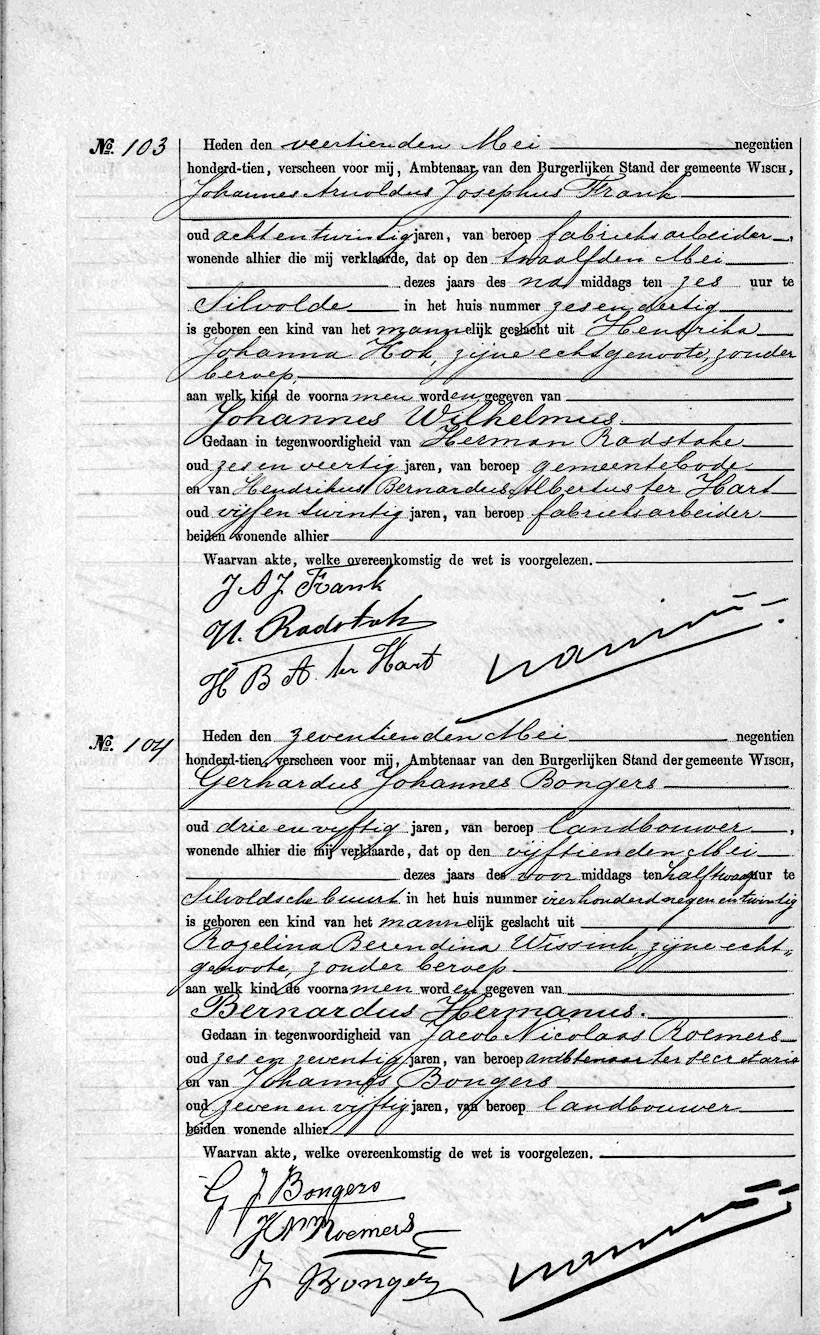 №. 103
Heden den veertienden Mei negentien
honderd-tien, verscheen voor mij, Ambtenaar van den Burgerlijken Stand der gemeente WISCH,
Johannes Arnoldus Josephus Frank
oud achtentwintig jaren, van beroep fabrieksarbeider,
wonende alhier die mij verklaarde, dat op den twaalfden Mei
dezes jaars des na middags ten zes uur te
Silvolde in het huis nummer zesendertig
is geboren een kind van het mannelijk geslacht uit Hendrika
Johanna Kok, zijne echtgenoote, zonder
beroep.
aan welk kind de voornamen worden gegeven van
Johannes Wilhelmus.
Gedaan in tegenwoordigheid van Herman Radstake
oud zesenveertig jaren, van beroep gemeentebode
en van Hendrikus Bernardus Albertus ter Hart
oud vijfentwintig jaren, van beroep fabrieksarbeider
beiden wonende alhier
Waarvan akte, welke overeenkomstig de wet is voorgelezen.
J A J Frank
H. Radstak
H B A ter Hart
№. 104
Heden den zeventienden Mei negentien
honderd-tien, verscheen voor mij, Ambtenaar van den Burgerlijken Stand der gemeente WISCH,
Gerhardus Johannes Bongers
oud drieenvijftig jaren, van beroep landbouwer,
wonende alhier die mij verklaarde, dat op den vijftienden Mei
dezes jaars des voor middags ten half twaalf uur te
Silvoldsche buurt in het huis nummer vierhonderd negenentwintig
is geboren een kind van het mannelijk geslacht uit
Rozelina Berendina Wissink, zijne echt=
genoote, zonder beroep.
aan welk kind de voornamen worden gegeven van
Bernardus Hermanus.
Gedaan in tegenwoordigheid van Jacob Nicolaas Roemers
oud zesenzeventig jaren, van beroep ambtenaar ter secretarie
en van Johannes Bongers
oud zevenenvijftig jaren, van beroep landbouwer
beiden wonende alhier
Waarvan akte, welke overeenkomstig de wet is voorgelezen.
G J Bongers
Roemers
J Bongers